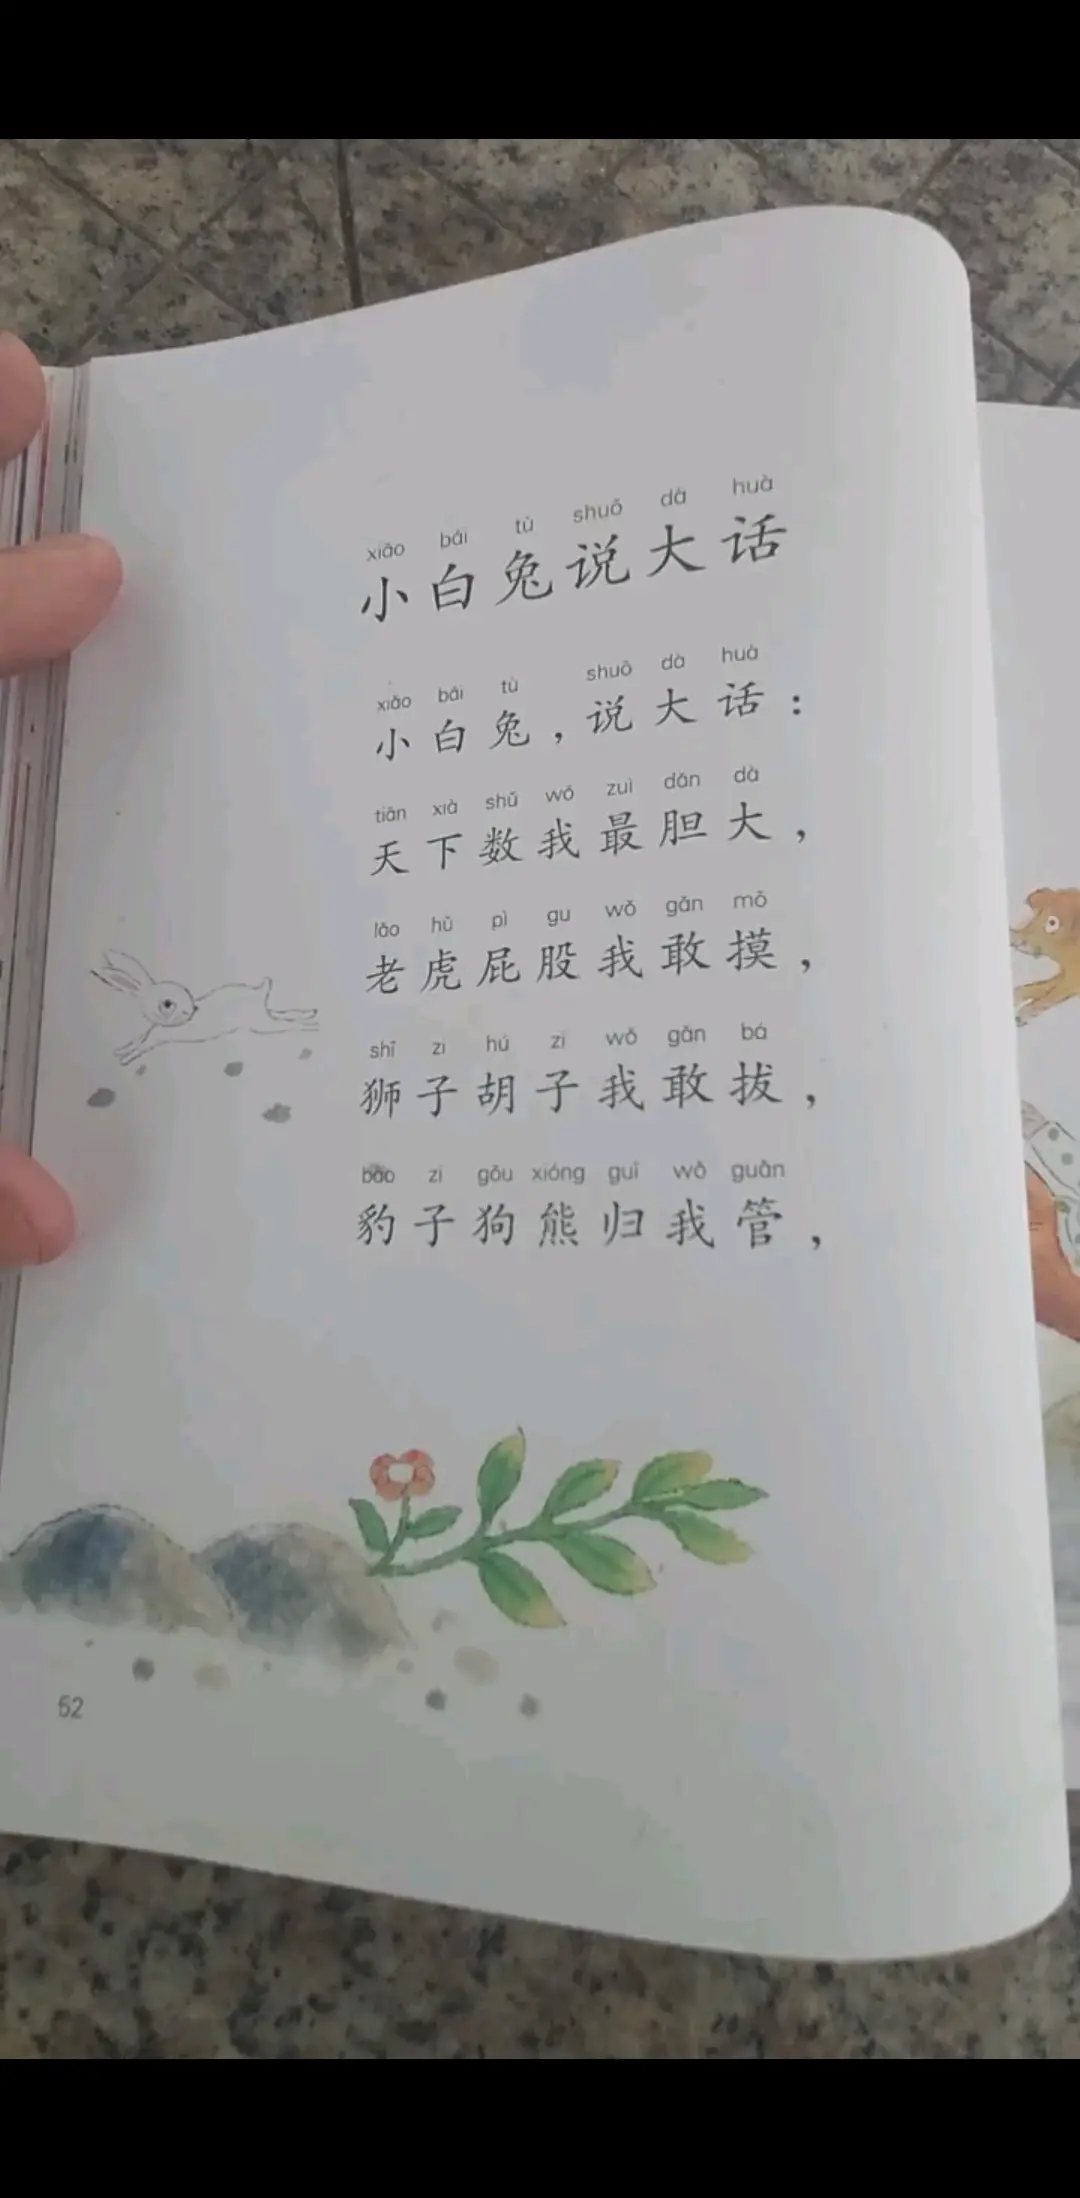 xiǎo bái tù shuō dà huà
小白兔说大话
xiǎo bái tù shuō dà huà
小白兔，说大话：
tiān xià shǔ wǒ zuì dǎn dà
天下数我最胆大，
lǎo hǔ pì gu wǒ gǎn mō
老虎屁股我敢摸，
shī zi hú zi wǒ gǎn bá
狮子胡子我敢拔，
bào zi gǒu xióng guī wǒ guǎn
豹子狗熊归我管，
52